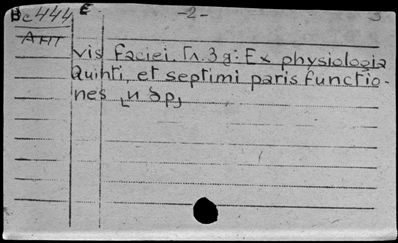 Bc444 E. -2- 3
AHT
vis faciei. [Λ. 3 g: Ex physiologia
Quinti, et septimi paris functio-
nes